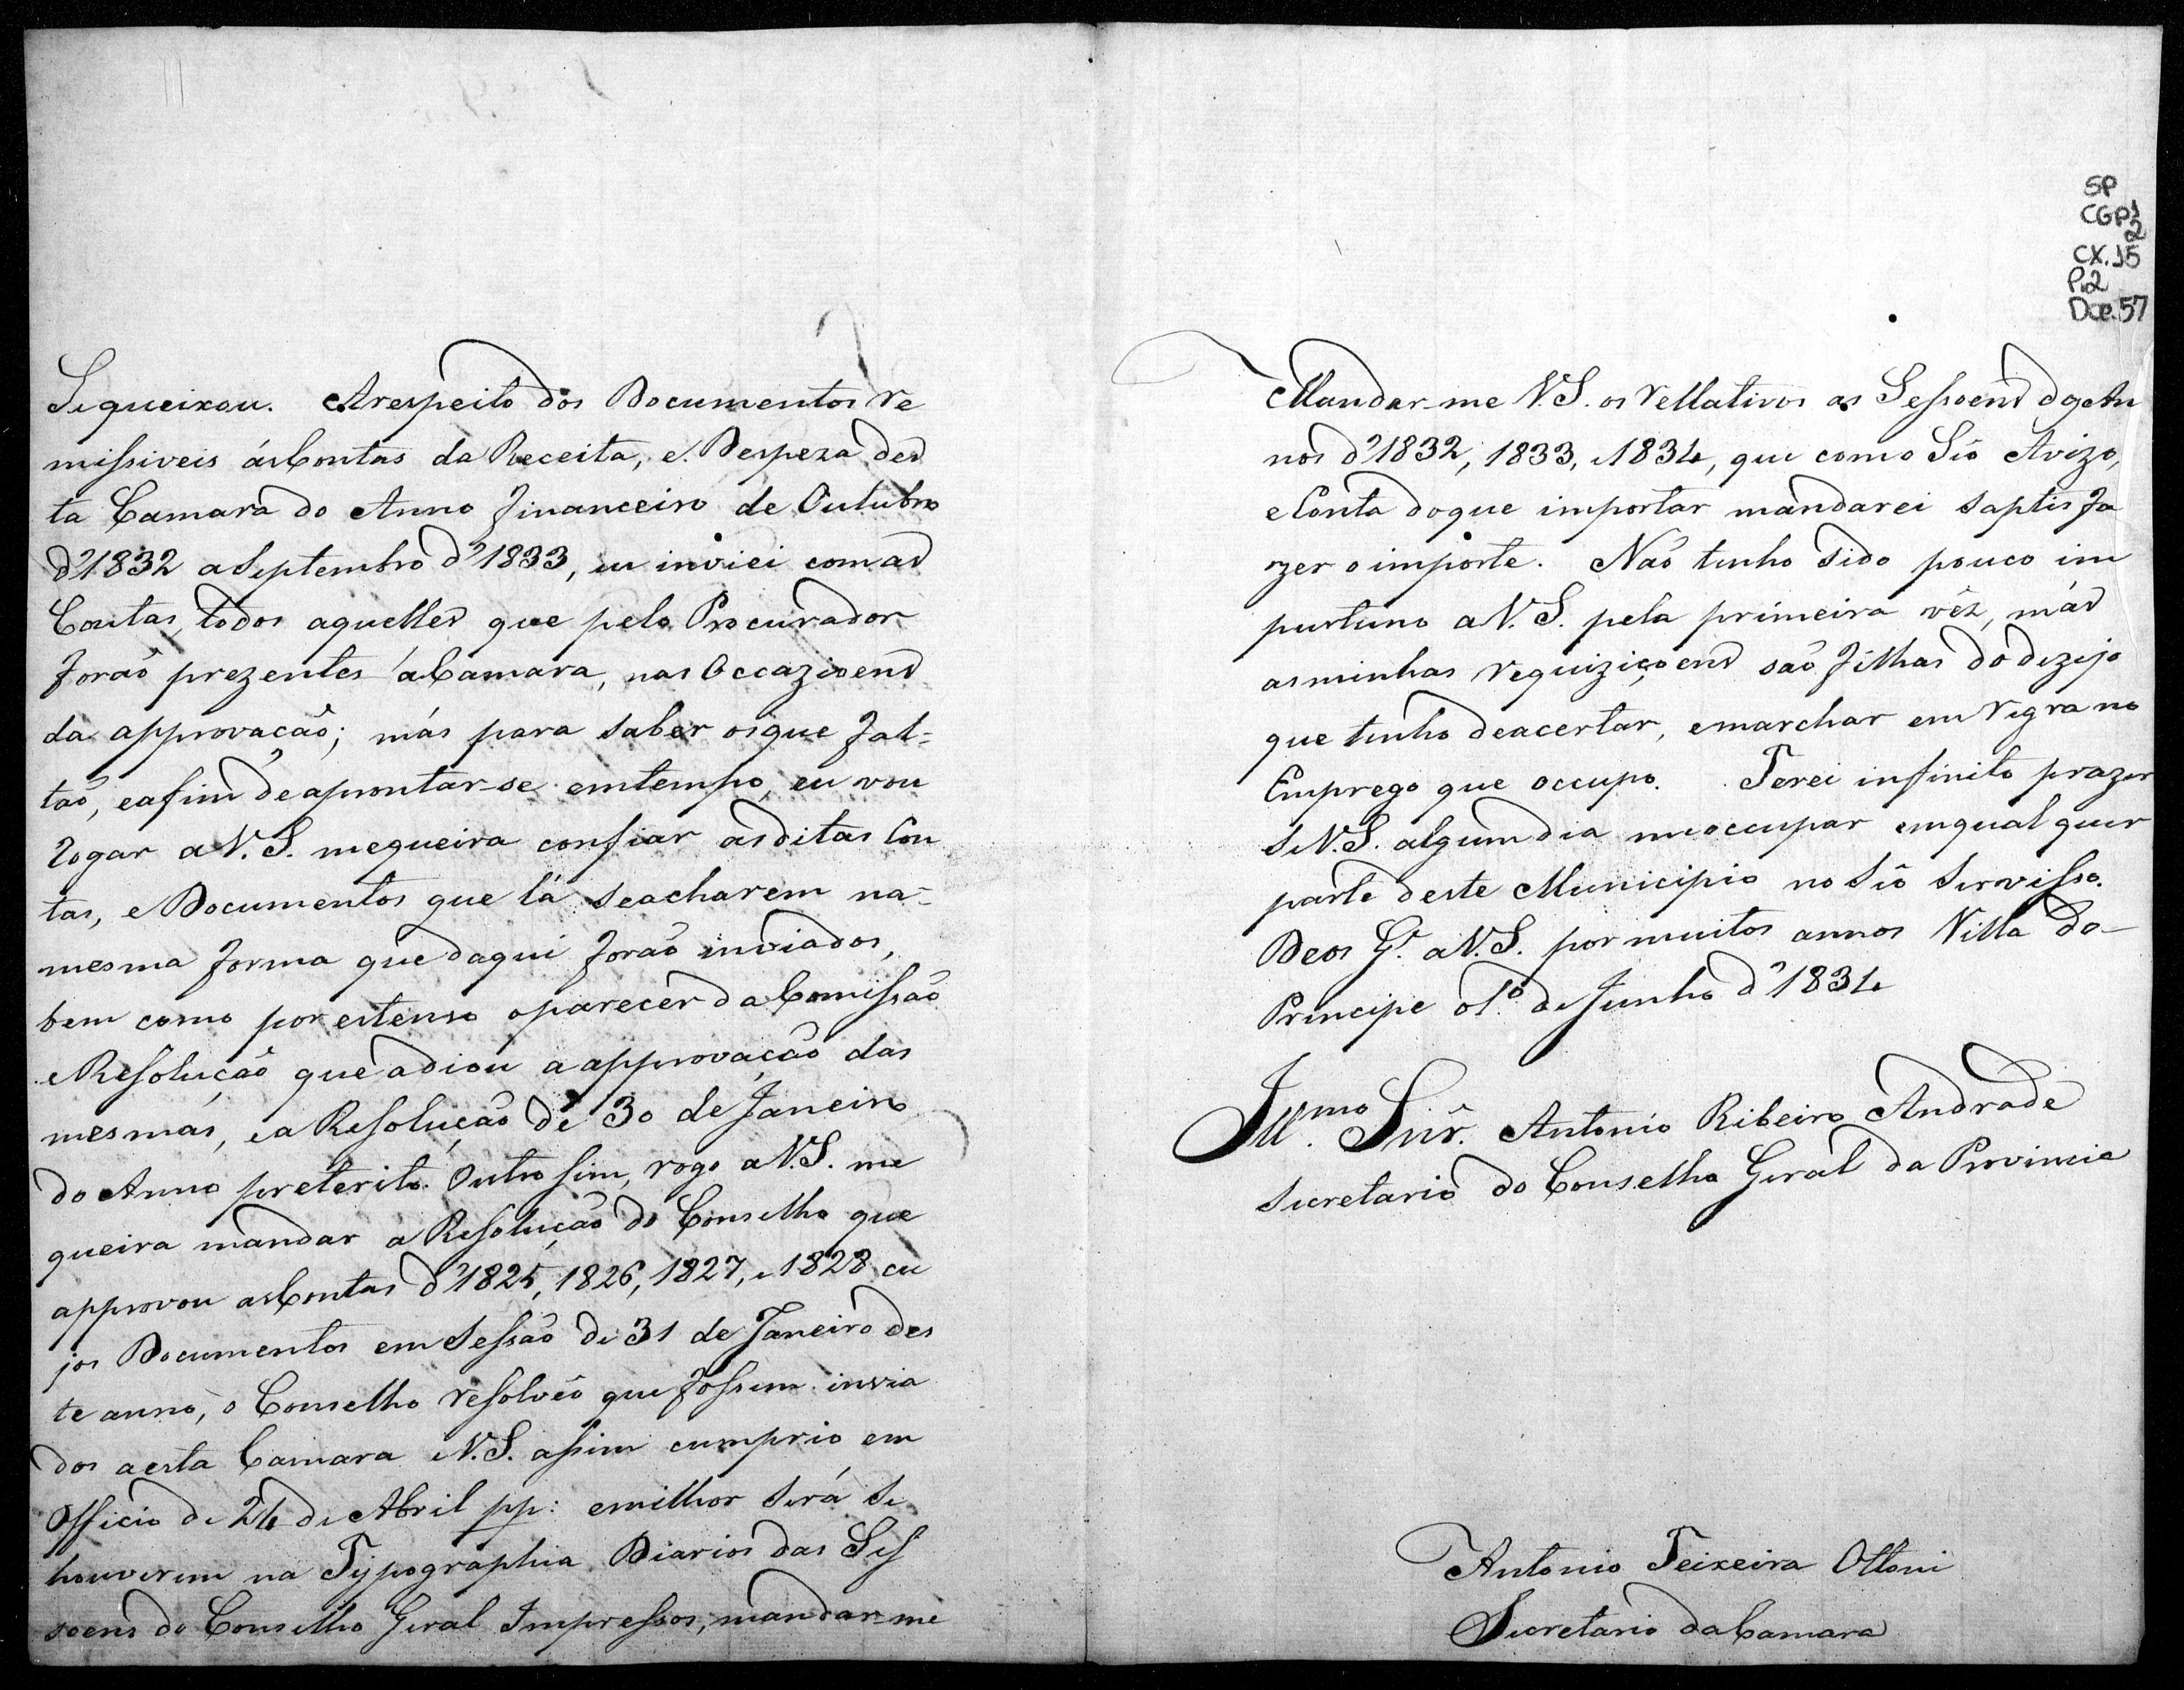 Sequeixou. Arespeito dos Documentos re
missiveis ásContas da Receita, e Despeza des
ta Camara do Anno financeiro de Outubro
d'1832 aSeptembro d'1833, eu inviei comas
Contas, todos aquelles que pelo Procurador
forão prezentes áCamara, nas Occazioens
da approvação; más para saber osque fal=
tão, eafim deapontar-se emtempo, eu vou
rogar aV.S. mequeira confiar asditas Con
tas, eDocumentos que lá seacharem na-
mesma forma que daqui forão inviados,
bem como porestenso oparecer daComissão
eResolução que adiou a approvação das
mesmas, ea Resolução de 30 de Janeiro
do Anno preterito. Outro sim, rogo aV.S. me
queira mandar a Resolução do Conselho que
approvou asContas d'1825, 1826, 1827, e1828 cu
jos Documentos em Sessão de 31 de Janeiro des
te anno, o Conselho resolvêo que fossem invia
dos aesta Camara eV.S. assim cumprio em
Officio de 24 de Abril pp: emilhor será se
houverem na Typographia Diarios das Ses
soens do Conselho Geral Impressos, mandar-me
SP
CGP1
2
CX.15
P.2
Doc.57
Mandar-me V.S. os rellativos as Sessoens dos An
nos d'1832, 1833, e1834, que como Sêo Avizo,
eConta doque importar mandarei saptisfa
zer oimporte. Não tenho sido pouco im
purtuno aV.S. pela primeira vêz, más
asminhas requiziçoens são filhas do dezejo
que tenho deacertar, emarchar em regra no
Emprego que occupo. Terei infinito prazer
seV.S. algum dia meoccupar emqual quer
parte deste Municipio no Sêo Servisso.
Deos G.e aV.S. pormuitos annos Villa do-
Principe o1.º de Junho d'1834
Ill.mo Snr. Antonio Ribeiro Andrade
Secretario do Conselho Geral da Provincia
Antonio Teixeira Ottoni
Secretario daCamara